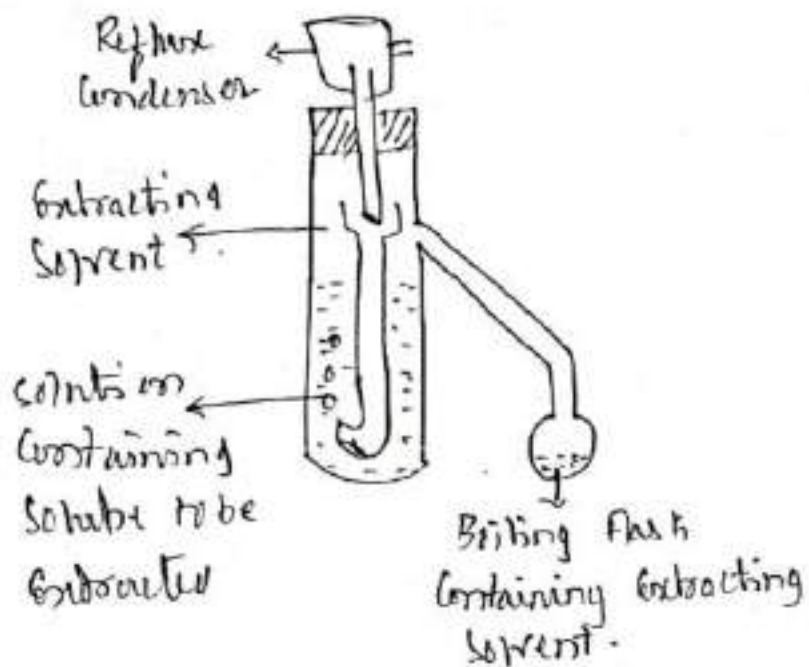 Reflux
Condensor
Extracting
Solvent.
Solution
Containing
Solute to be
Extracted
Boiling Flask
Containing Extracting
Solvent.